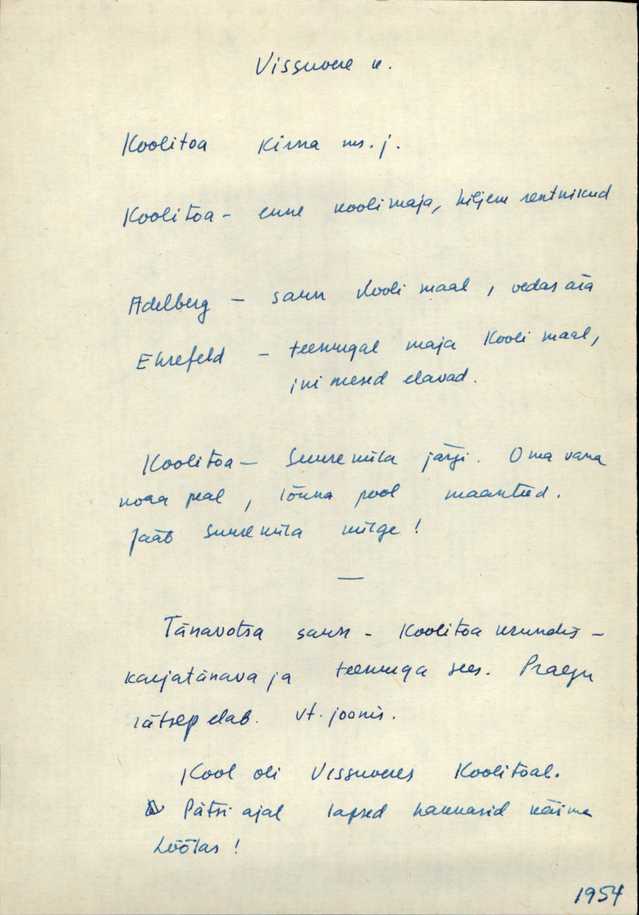 Vissuvere k.
Koolitoa Kirna ns. j.
Koolitoa - enne koolimaja, hiljem rentnikud
Adelberg - saun Kooli maal, vedas ära
Ehrefeld - teenugal maja Kooli maal,
inimesed elavad.
Koolitoa - Suureküla järgi. Oma vana
koha peal, lõuna pool maanteed.
Jääb Suureküla külge!
—
Tänavotsa saun - Koolitoa krundis -
karjatänava ja teenuga sees. Praegu
rätsep elab. vt. joonis.
Kool oli Vissuveres Koolitoal.
Pätsi ajal lapsed hakkasid käima
Lõõlas!
1954